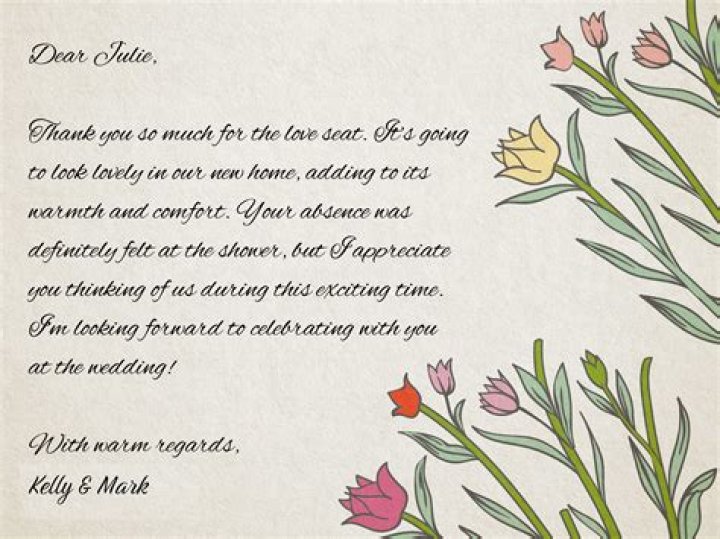 Dear Julie,
Thank you so much for the love seat. It's going
to look lovely in our new home, adding to its
warmth and comfort. Your absence was
definitely felt at the shower, but I appreciate
you thinking of us during this exciting time.
I'm looking forward to celebrating with you
at the wedding!
With warm regards,
Kelly & Mark